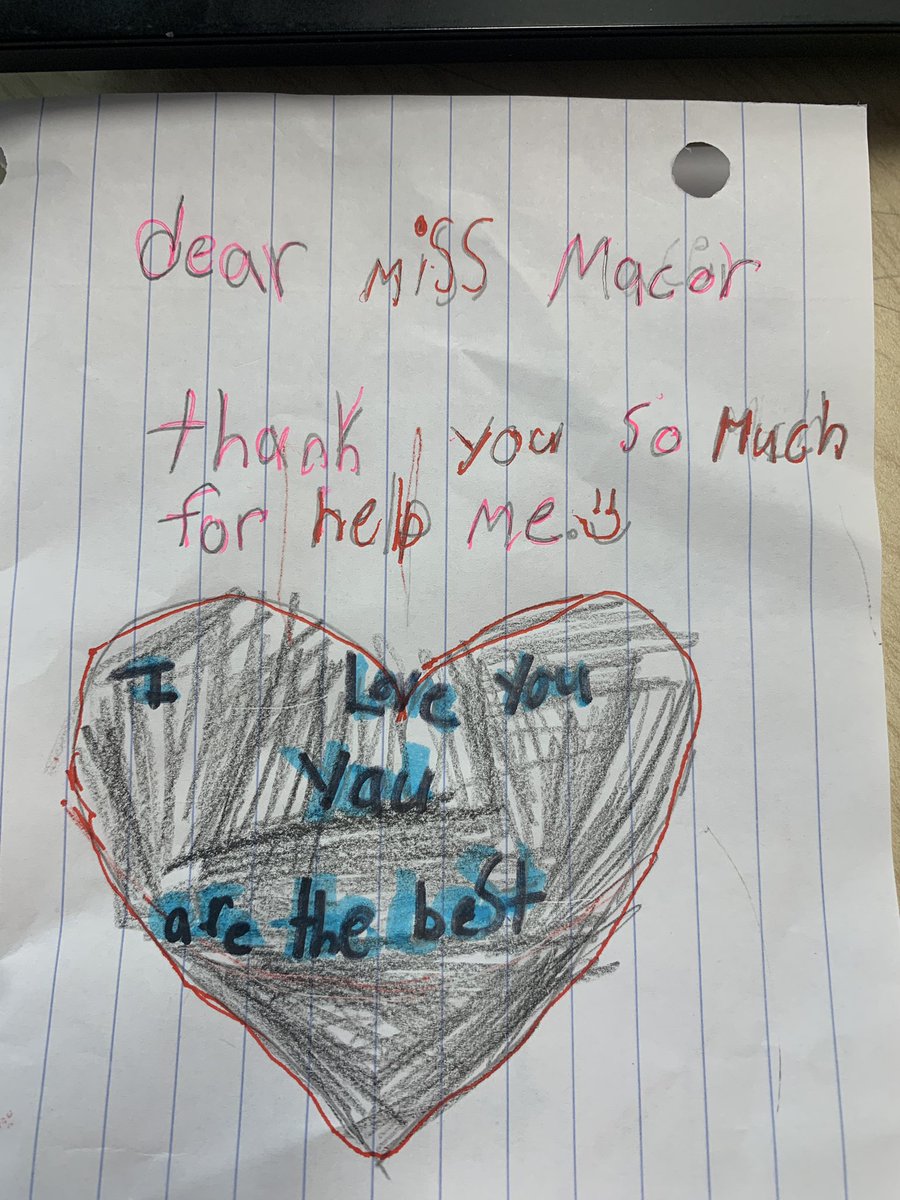 dear miss Macor
thank you so Much
for help me.
I Love You
You
are the best